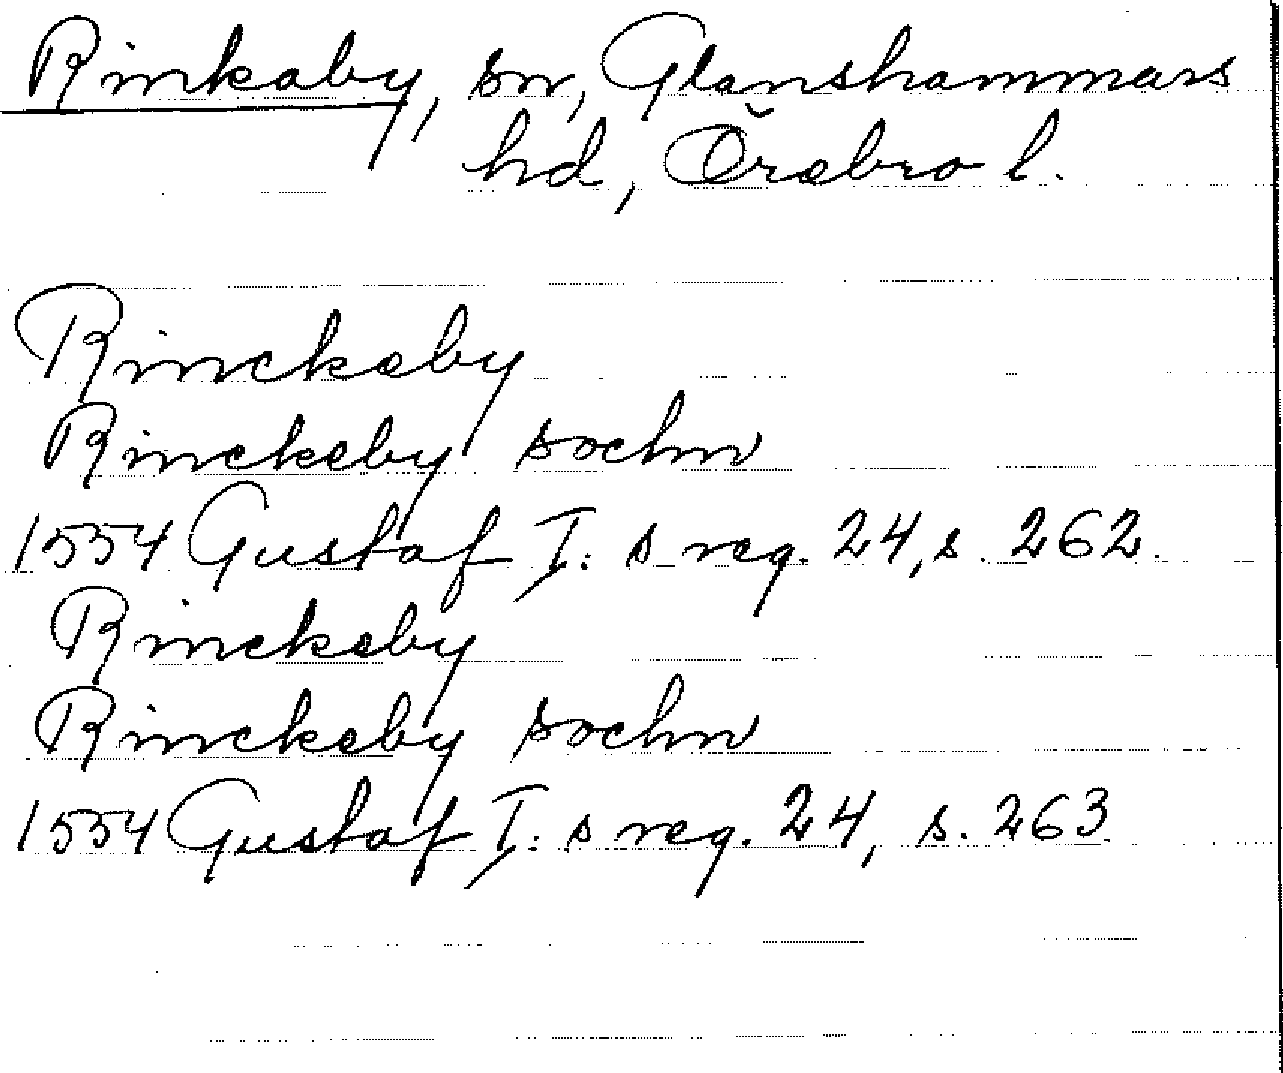 Rinkaby, sn, Glanshammars
hd, Örebro l.
Rinckeby
Rinckeby sochn
1554 Gustaf I: s reg. 24, s. 262.
Rinckeby
Rinckeby sochn
1554 Gustaf I: s reg. 24, s. 263.